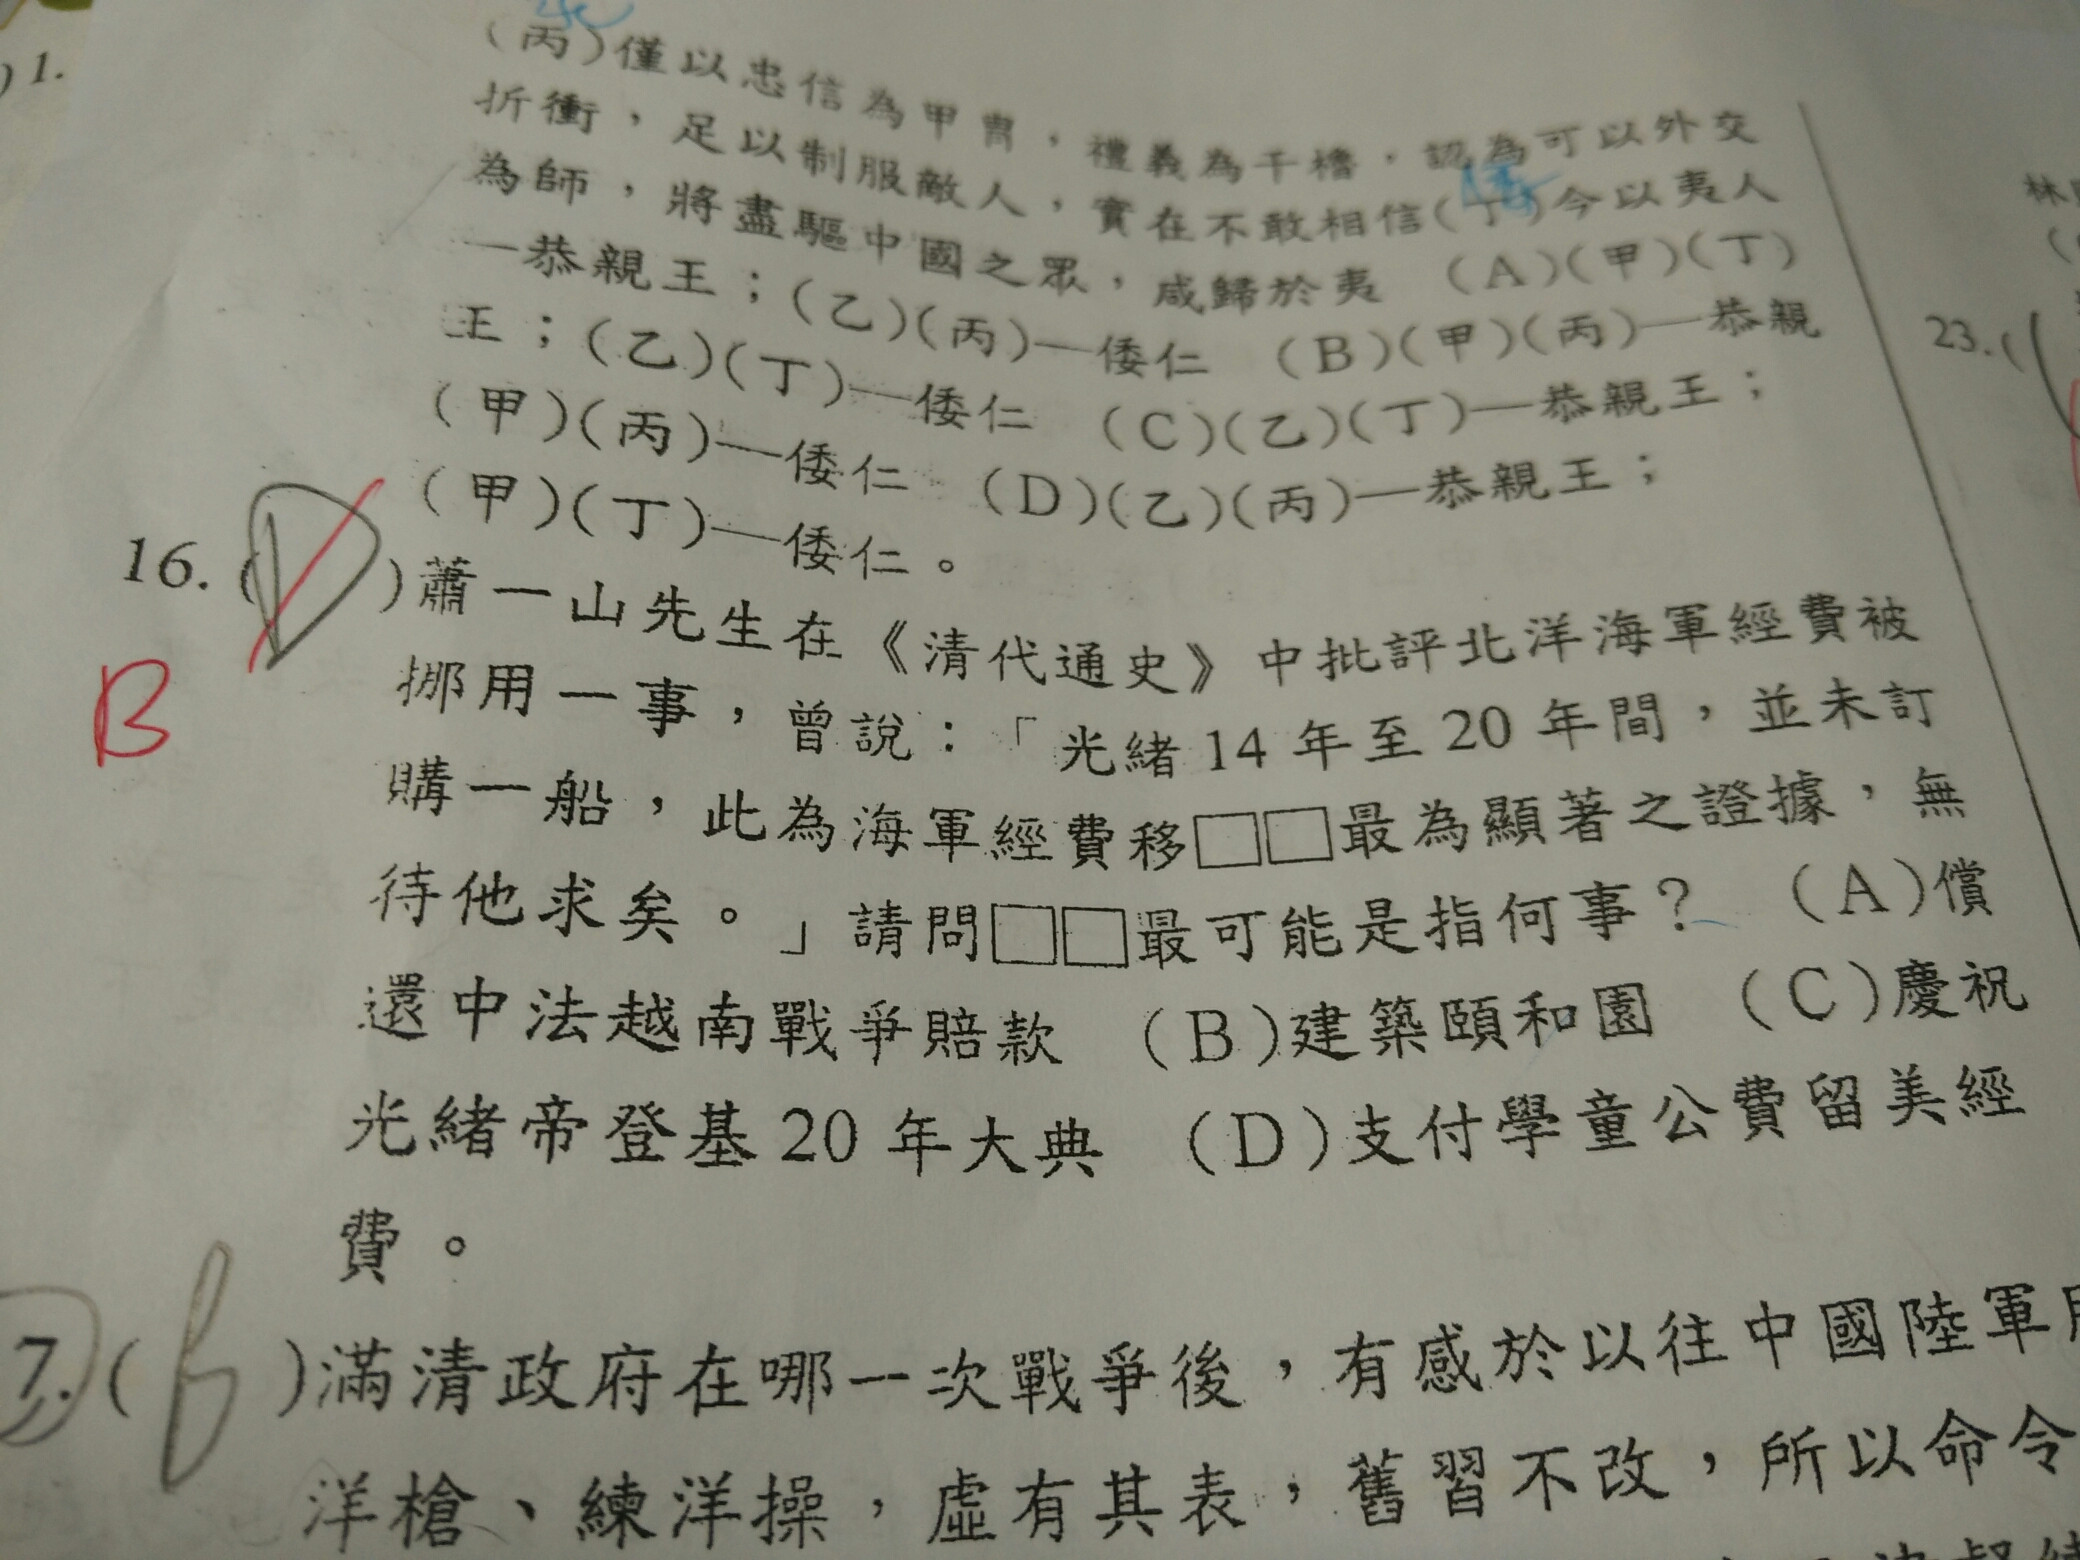 )1.
(丙)僅以忠信為甲冑，禮義為干櫓，認為可以外交
折衝，足以制服敵人，實在不敢相信(丁)今以夷人
為師，將盡驅中國之眾，咸歸於夷 (A)(甲)(丁)
—恭親王；(乙)(丙)—倭仁 (B)(甲)(丙)—恭親
王；(乙)(丁)—倭仁 (C)(乙)(丁)—恭親王；
(甲)(丙)—倭仁 (D)(乙)(丙)—恭親王；
(甲)(丁)—倭仁。
16.(D)蕭一山先生在《清代通史》中批評北洋海軍經費被
B
挪用一事，曾說：「光緒14年至20年間，並未訂
購一船，此為海軍經費移□□最為顯著之證據，無
待他求矣。」請問□□最可能是指何事？ (A)償
還中法越南戰爭賠款 (B)建築頤和園 (C)慶祝
光緒帝登基20年大典 (D)支付學童公費留美經
費。
7.(B)滿清政府在哪一次戰爭後，有感於以往中國陸軍用
洋槍、練洋操，虛有其表，舊習不改，所以命令
林
23.(